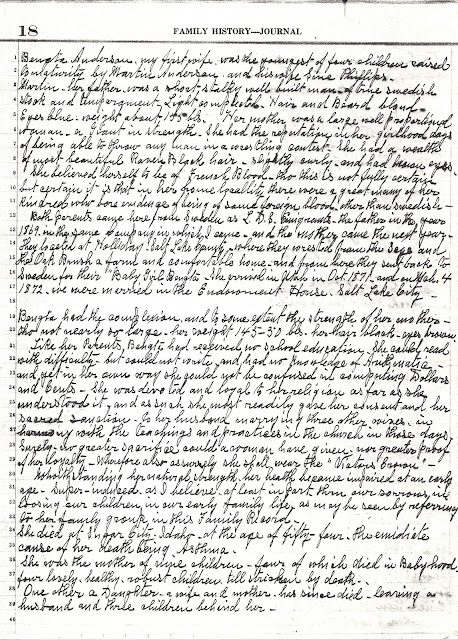 18
FAMILY HISTORY—JOURNAL
Bengta Anderson, my first wife, was the youngest of four children raised
to maturity by Martin Anderson, and his wife Sine Phillips.
Martin her father, was a short, stalky well built man of true swedish
stock and temperment. Light complected. Hair and Beard blond-
Eyes blue. weight about 175 lbs. Her mother was a large well proportioned
woman - a Giant in strength. She had the reputation in her girlhood days
of being able to throw any man in a wrestling contest. She had a wealth
of most beautiful Raven Black hair - slightly curly - and had brown eyes.
She believed herself to be of French Blood - tho this is not fully certain
but certain it is that in her home locallity there were a great many of her
kindred who bore evidence of being of some foreign blood, other than Swedish -
Both parents came here from Sweden as L.D.S. Emigrants. the father in the year
1869. in the same company in which I came - and the mother came the next year -
They located at Holliday, Salt Lake County - where they wrested from the Sage and
the Oak Brush a farm and comfortable home - and from here they sent back to
Sweden for their "Baby Girl Bengta. She arrived in Utah in Oct. 1871. and on Mch. 4
1872. we were married in the Endowment House. Salt Lake City.
Bengta had the complection, and to some extent the strength of her mother -
tho not nearly so large. her weight 145-50 lbs. her hair black - eyes brown.
Like her Parents, Bengta had received no school education. She could read
with difficulty - but could not write, and had no knowledge of Arithmatic -
and yet in her own way she could not be confused in computing Dollars
and Cents - She was devoted and loyal to her religion as far as she
understood it, and as such she most readily gave her consent and her
sacred sanction. to her husband marrying three other wives. in
harmony with the teachings and practices in the church in those days
Surely - no greater sacrifice could a woman have given. nor greater proof
of her loyalty - Wherefore also assuredly she shall wear the
Notwithstanding her natural strength, her health became impaired at an early
age - Super-induced, as I believe at least in part from our sorrows, in
loosing our children in our early family life, as may be seen by referency
to her family group in this Family Record.
She died at Sugar City - Idaho - at the age of fifty-four. the emidiate
cause of her death being Asthma.
She was the mother of nine children - four of which died in Babyhood.
four lovely, healthy - robust children till stricken by death. -
One other a Daughter - a wife and mother. has since died - leaving a
husband and three children behind her -